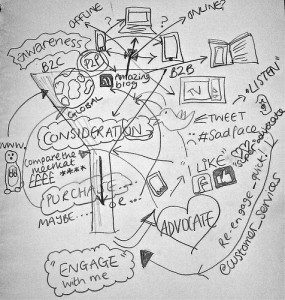 OFFLINE
?
ONLINE?
awareness
B2C
P2P
Amazing
blog
B2B
GLOBAL
"LISTEN"
TWEET
#sadface
CONSIDERATION
compare the
meerkat
££££ ****
"LIKE"
f
PURCHASE....
MAYBE....
or...
ADVOCATE
re-engage
@customer_services
"ENGAGE"
with me